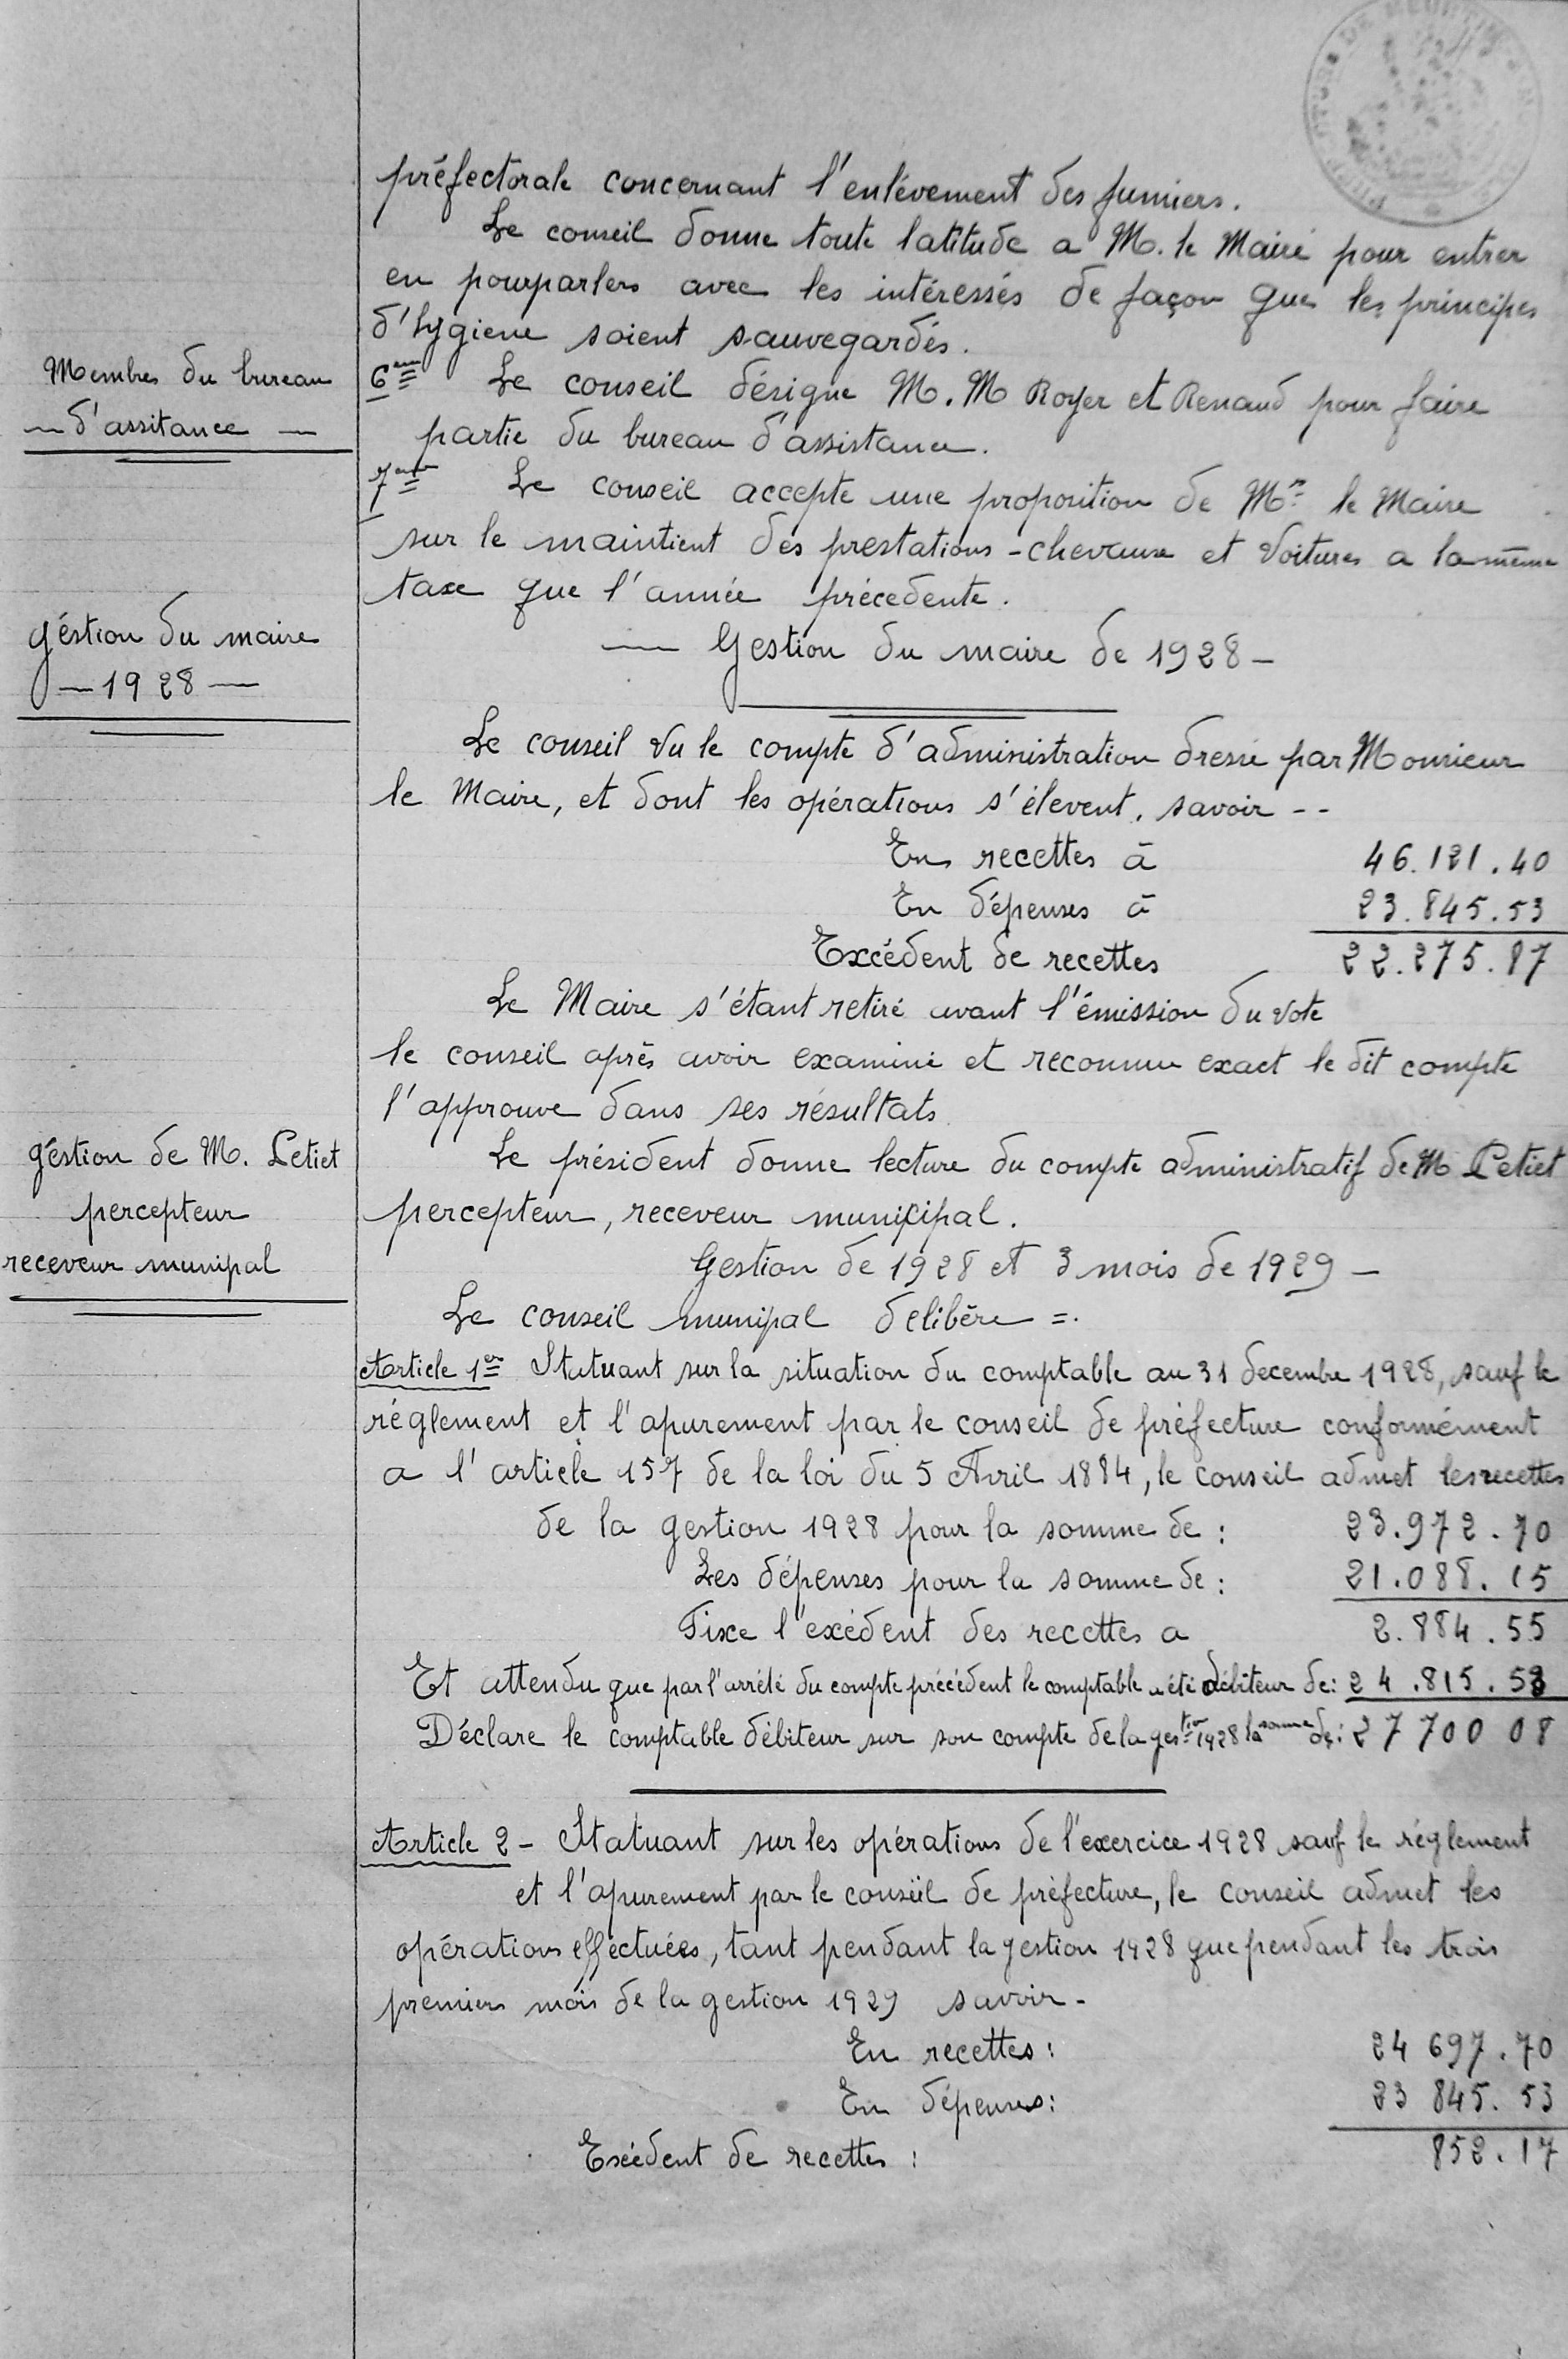 préfectorale concernant l'enlévement des fumiers.
Le conseil donne toute latitude a M. le Maire pour entrer
en pourparlers avec les intéressés de façon que les principes
d'hygiene soient sauvegardés.
Membres du bureau
— d'assitance —
6em Le conseil désigne M. M Royer et Renaud pour faire
partie du bureau d'assistance.
7em Le conseil accepte une proposition de Mr le Maire
sur le maintient des prestations - chevaux et voitures a la même
taxe que l'année précedente.
géstion du maire
— 1928 —
— Gestion du maire de 1928 —
Le conseil vu le compte d'administration dressé par Monsieur
le Maire, et dont les opérations s'élevent, savoir --
En recettes à 46.121.40
En dépenses à 23.845.53
Excédent de recettes 22.275.87
Le Maire s'étant retiré avant l'émission du vote
le conseil après avoir examiné et reconnu exact le dit compte
l'approuve dans ses résultats
géstion de M. Petiet
percepteur
receveur munipal
Le président donne lecture du compte administratif de M Petiet
percepteur, receveur municipal.
Gestion de 1928 et 3 mois de 1929 —
Le conseil munipal delibère =.
Article 1er Statuant sur la situation du comptable au 31 decembre 1928, sauf le
réglement et l'apurement par le conseil de préfecture conformément
a l'article 157 de la loi du 5 Avril 1884, le conseil admet les recettes
de la gestion 1928 pour la somme de : 23.972.70
Les dépenses pour la somme de : 21.088.15
Fixe l'exédent des recettes a 2.884.55
Et attendu que par l'arrété du compte précédent le comptable a été débiteur de: 24.815.53
Déclare le comptable débiteur sur son compte de la gestion 1928 la somme de: 27 700 08
Article 2 - Statuant sur les opérations de l'exercice 1928 sauf le réglement
et l'apurement par le conseil de préfecture, le conseil admet les
opérations effectuées, tant pendant la gestion 1928 que pendant les trois
premiers mois de la gestion 1929 savoir -
En recettes: 24 697.70
En dépenses: 23 845.53
Exédent de recettes : 852.17